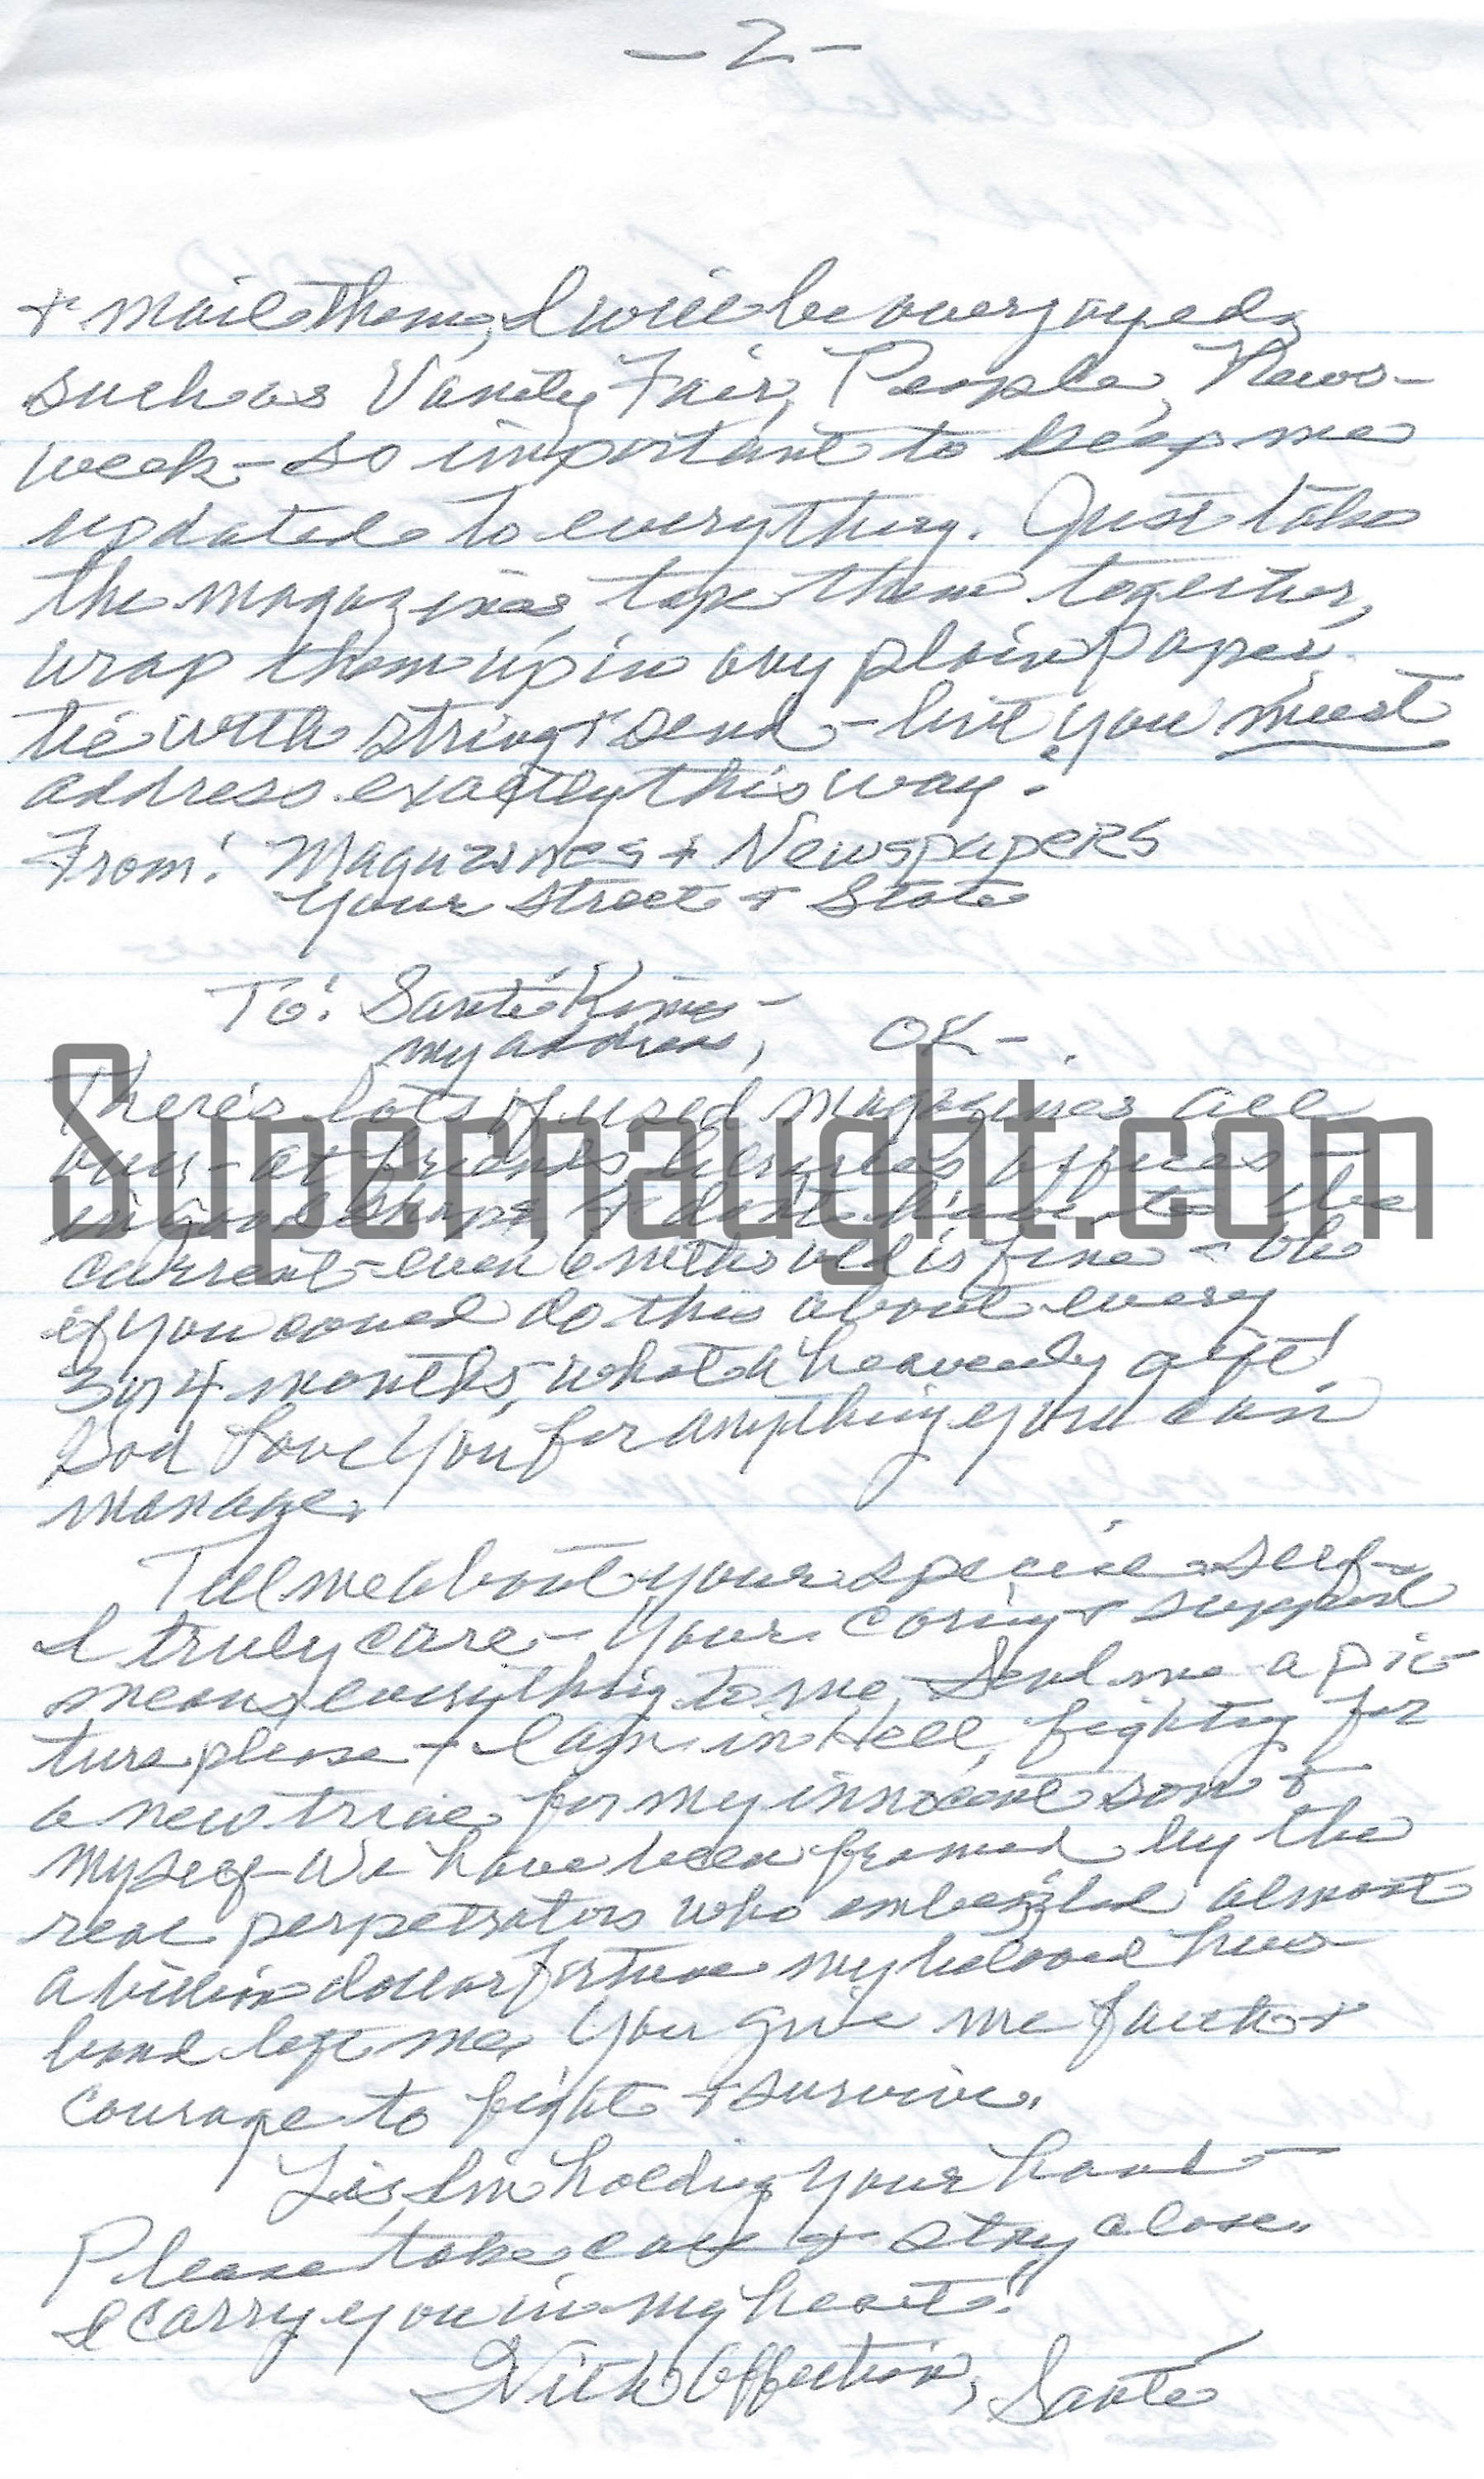 -2-
+ mail them, I will be overjoyed,
such as Vanity Fair, People, News-
week - so important to keep me
updated to everything. Just take
the magazines, tape them together,
wrap them up in any plain paper.
tie with string + send - but you must
address exactly this way:
From: Magazines + Newspapers
your street + State
To: Santé Kimes -
my address, OK -
There's lots of used magazines all
over - at friends, libraries, offices -
in good shape, + don't have to be
current - even 6 mths old is fine - oh
if you could do this about every
3 or 4 months, what a heavenly gift!
God Love You for anything you can
manage.
Tell me about your special self -
I truly care - your caring + support
means everything to me, Send me a pic-
ture please + I am in Hell, fighting for
a new trial for my innocent son +
myself - We have been framed by the
real perpetrators who embezzled almost
a billion dollar fortune my beloved hus-
band left me, You give me faith +
courage to fight + survive.
I'm holding your hand -
Please take care + stay close.
I carry you in my heart!
With Affection, Santé
Supernaught.com